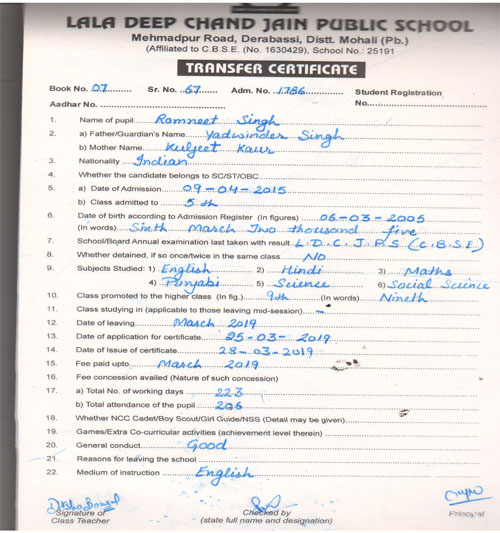 LALA DEEP CHAND JAIN PUBLIC SCHOOL
Mehmadpur Road, Derabassi, Distt. Mohali (Pb.)
(Affiliated to C.B.S.E. (No. 1630429), School No.: 25191
TRANSFER CERTIFICATE
Book No. 07 Sr. No. 67 Adm. No. 1786 Student Registration
Aadhar No. No.
1. Name of pupil Ramneet Singh
2. a) Father/Guardian's Name Yadwinder Singh
b) Mother Name Kuljeet Kaur
3. Nationality Indian
4. Whether the candidate belongs to SC/ST/OBC
5. a) Date of Admission 09-04-2015
b) Class admitted to 5th
6. Date of birth according to Admission Register (In figures) 06-03-2005
(In words) Sixth March Two thousand five
7. School/Board Annual examination last taken with result L.D.C.J.P.S (C.B.S.E)
8. Whether detained, if so once/twice in the same class NO
9. Subjects Studied: 1) English 2) Hindi 3) Maths
4) Punjabi 5) Science 6) Social Science
10. Class promoted to the higher class (In fig.) 9th (In words) Nineth
11. Class studying in (applicable to those leaving mid-session) -
12. Date of leaving March 2019
13. Date of application for certificate 25-03-2019
14. Date of Issue of certificate 28-03-2019
15. Fee paid upto March 2019
16. Fee concession availed (Nature of such concession)
17. a) Total No. of working days 223
b) Total attendance of the pupil 206
18. Whether NCC Cadet/Boy Scout/Girl Guide/NSS (Detail may be given)
19. Games/Extra Co-curricular activities (achievement level therein)
20. General conduct Good
21. Reasons for leaving the school
22. Medium of instruction English
Signature of Checked by Principal
Class Teacher (state full name and designation)